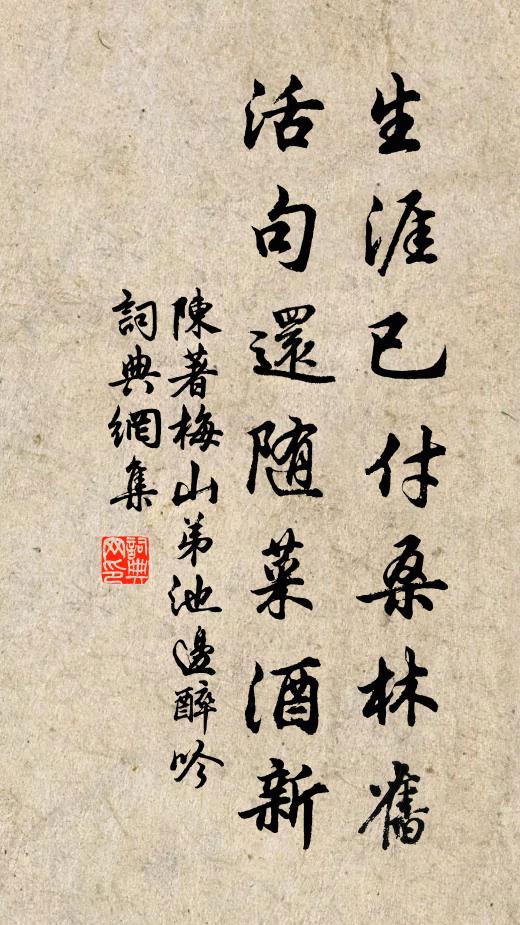 生涯已付桑林舊
活句還随菜酒新
陳著梅山弟池邊醉吟
詞典網集
詞典网印